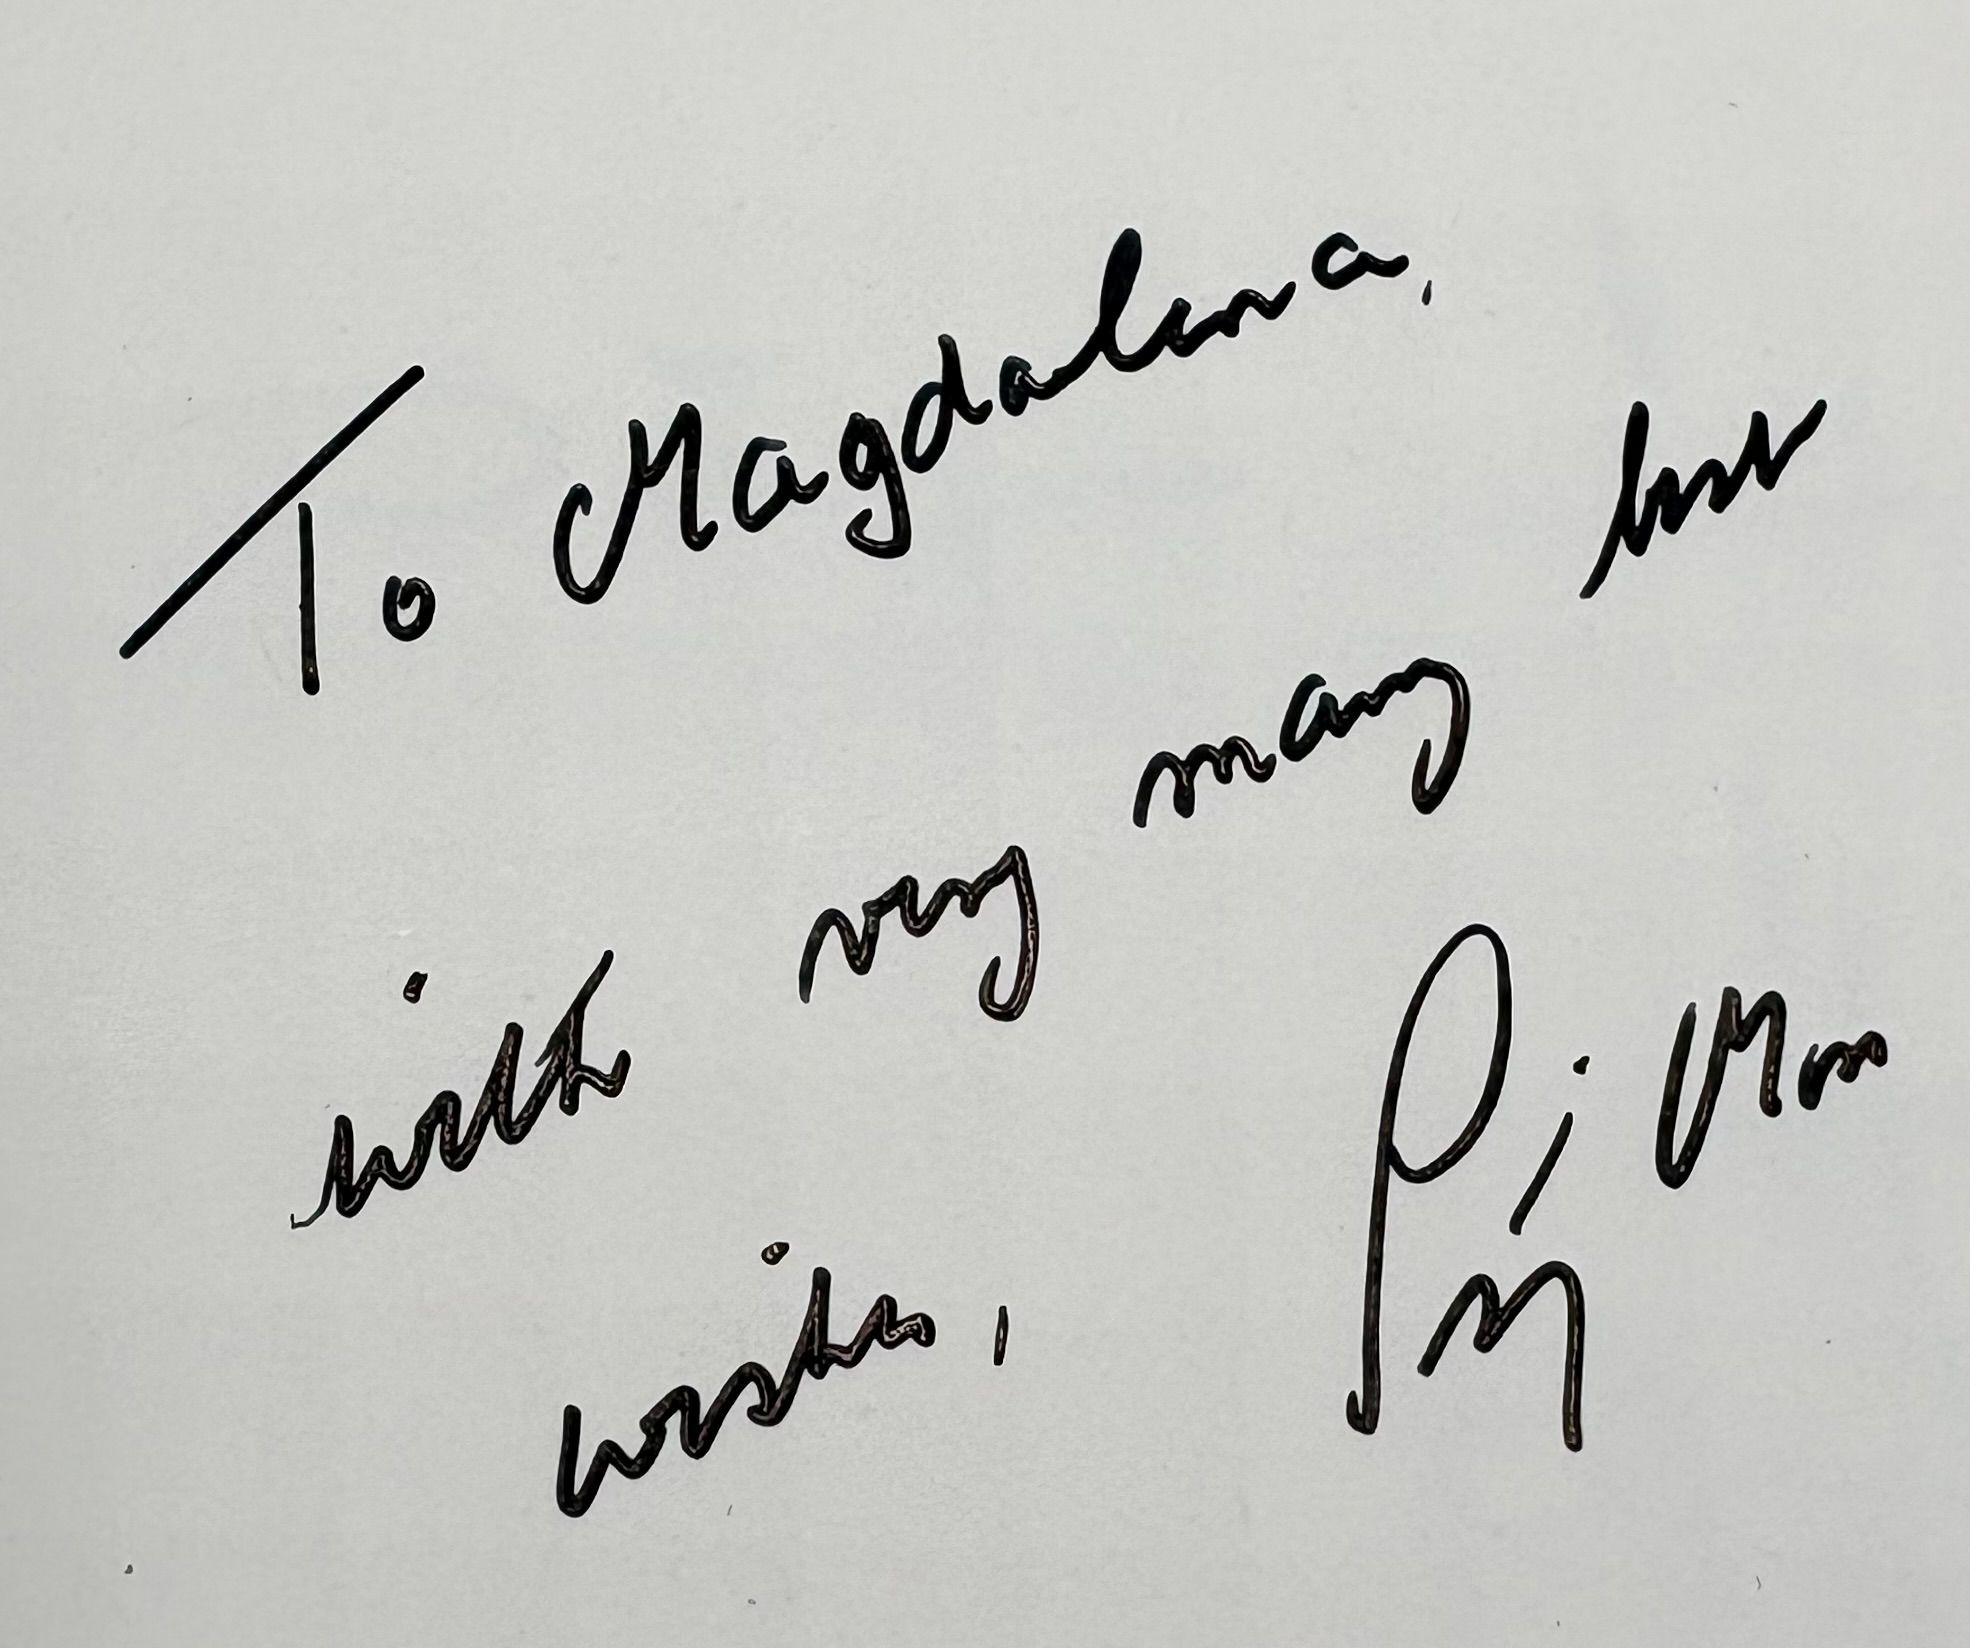 To Magdalena,
with very many best
wishes,